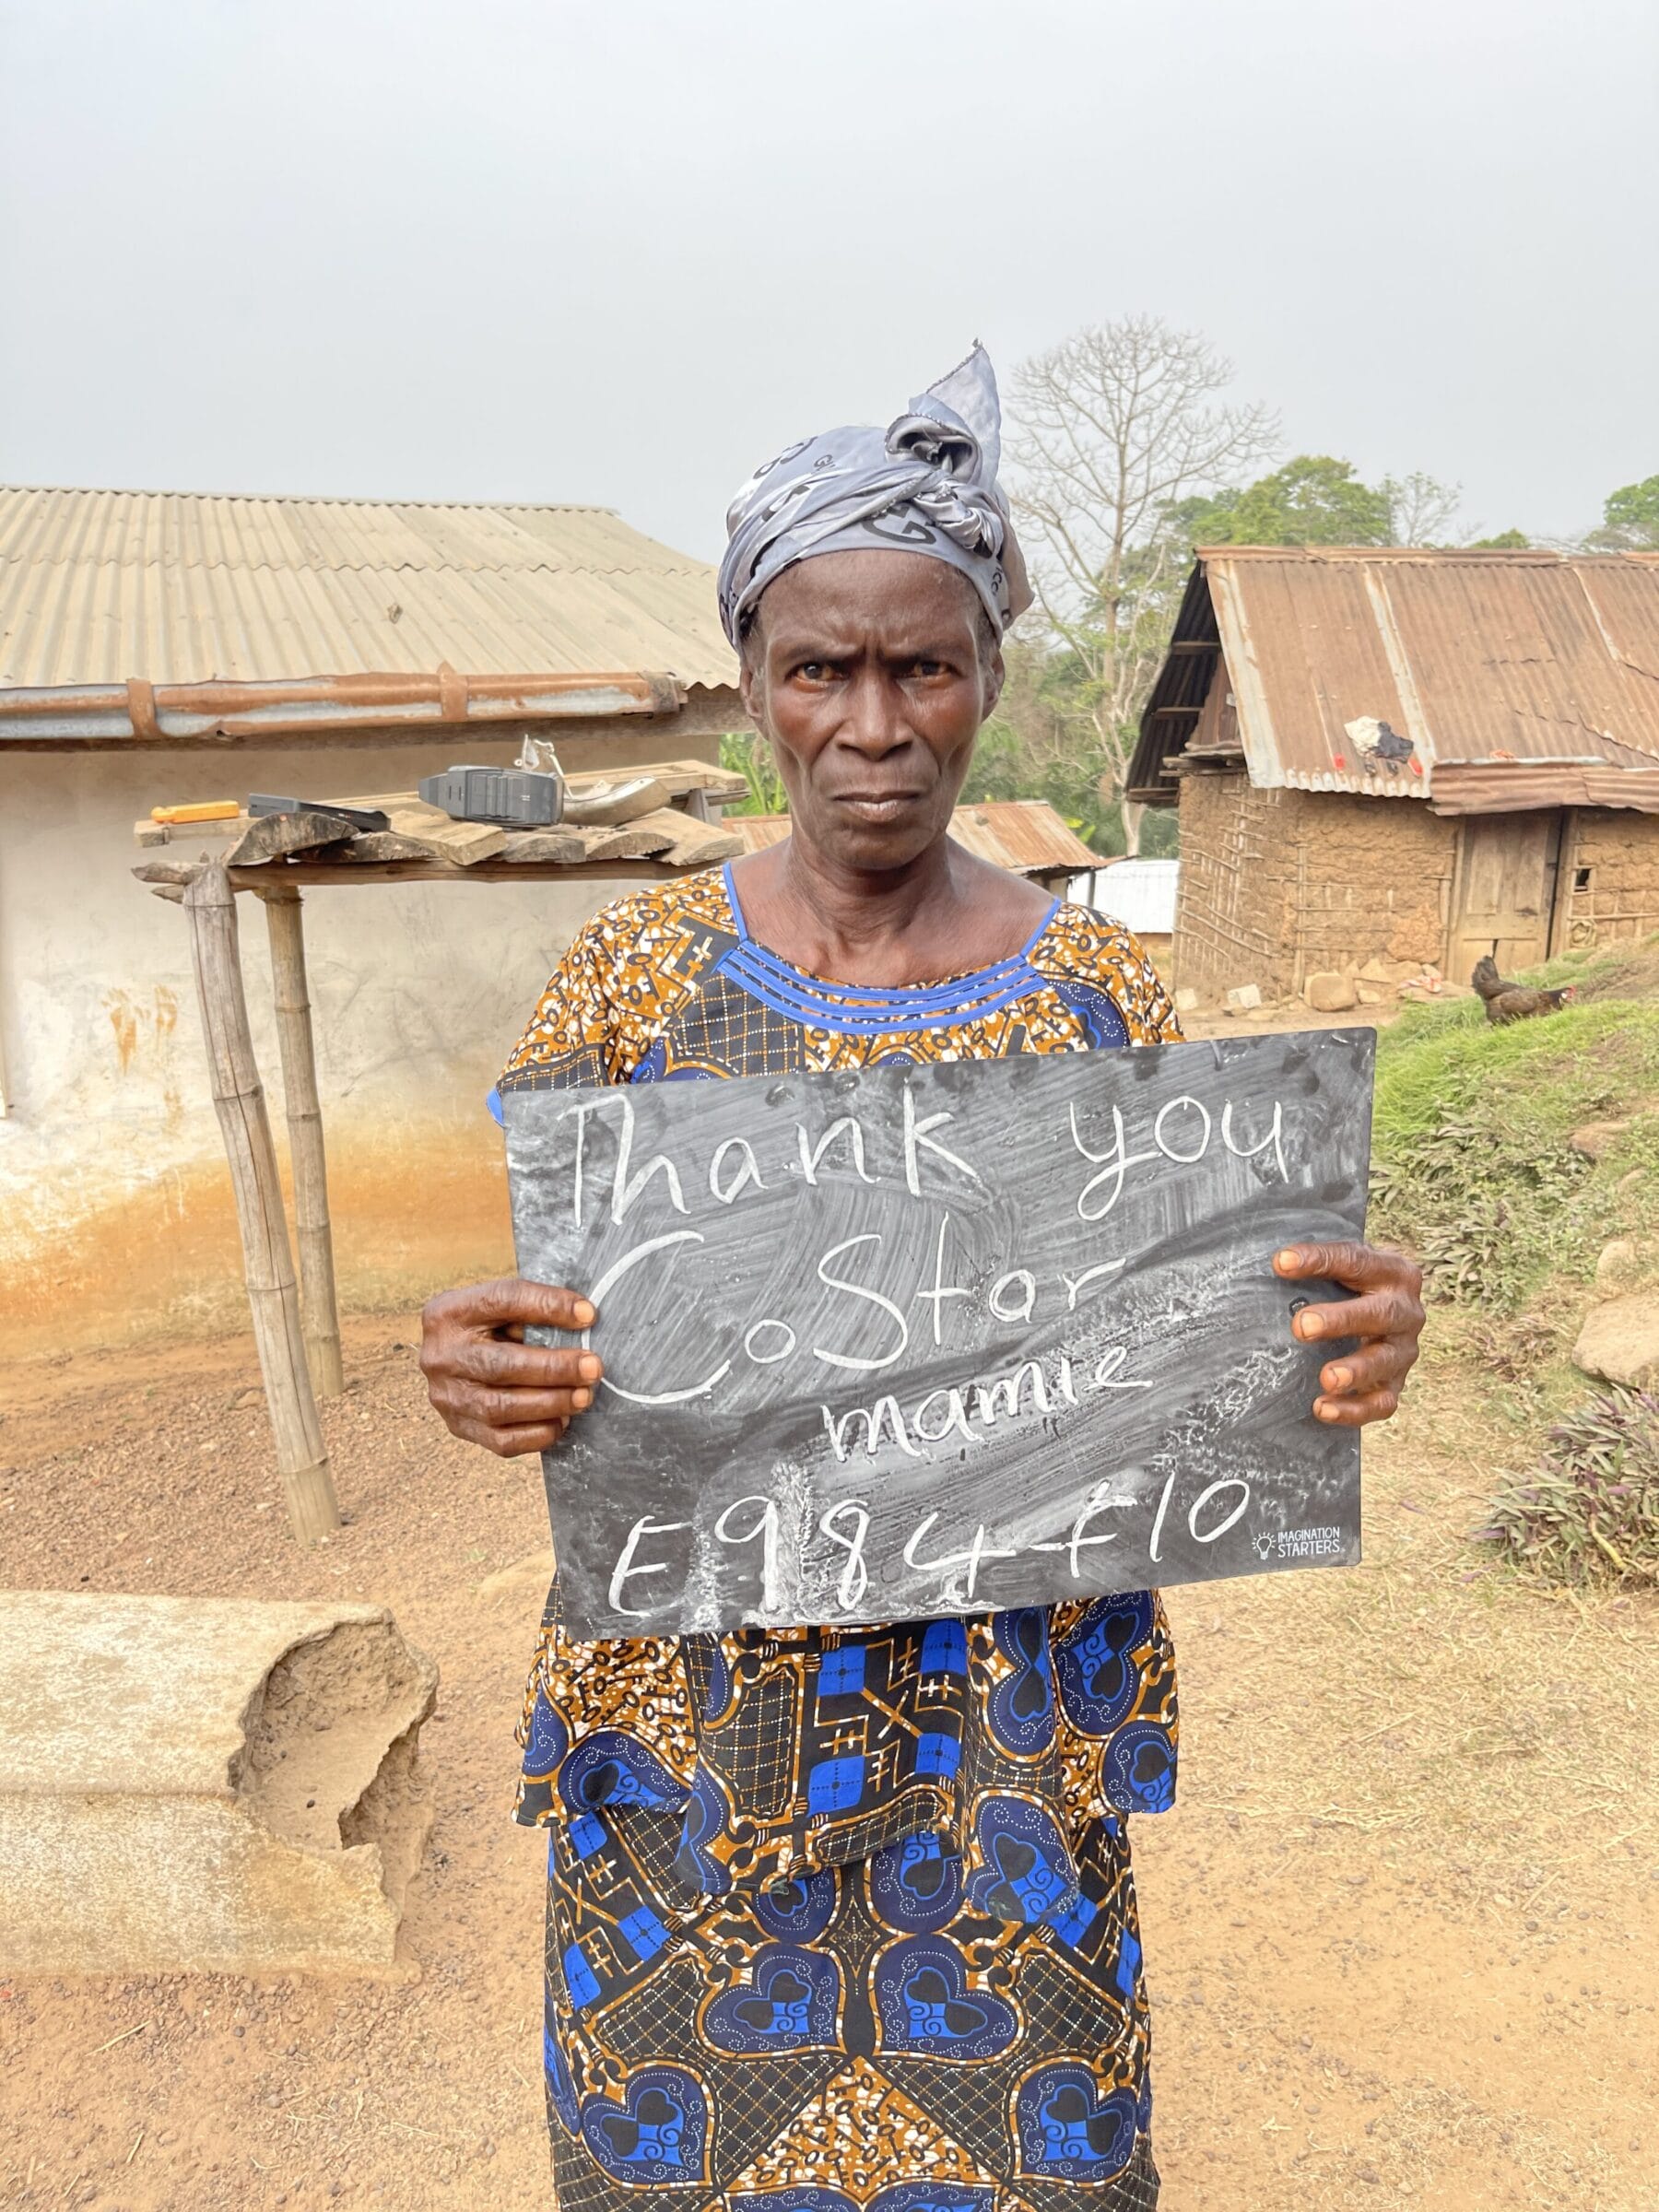 Thank you
CoStar
mamie
E984-F10
IMAGINATION
STARTERS